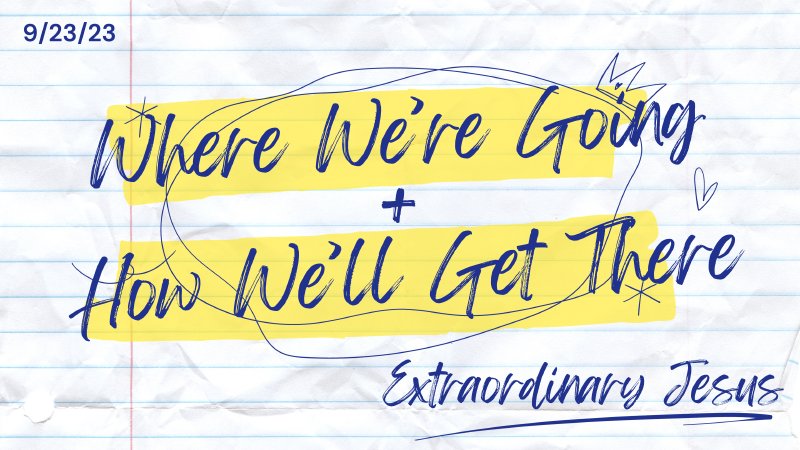 9/23/23
Where We're Going
+
How We'll Get There
Extraordinary Jesus